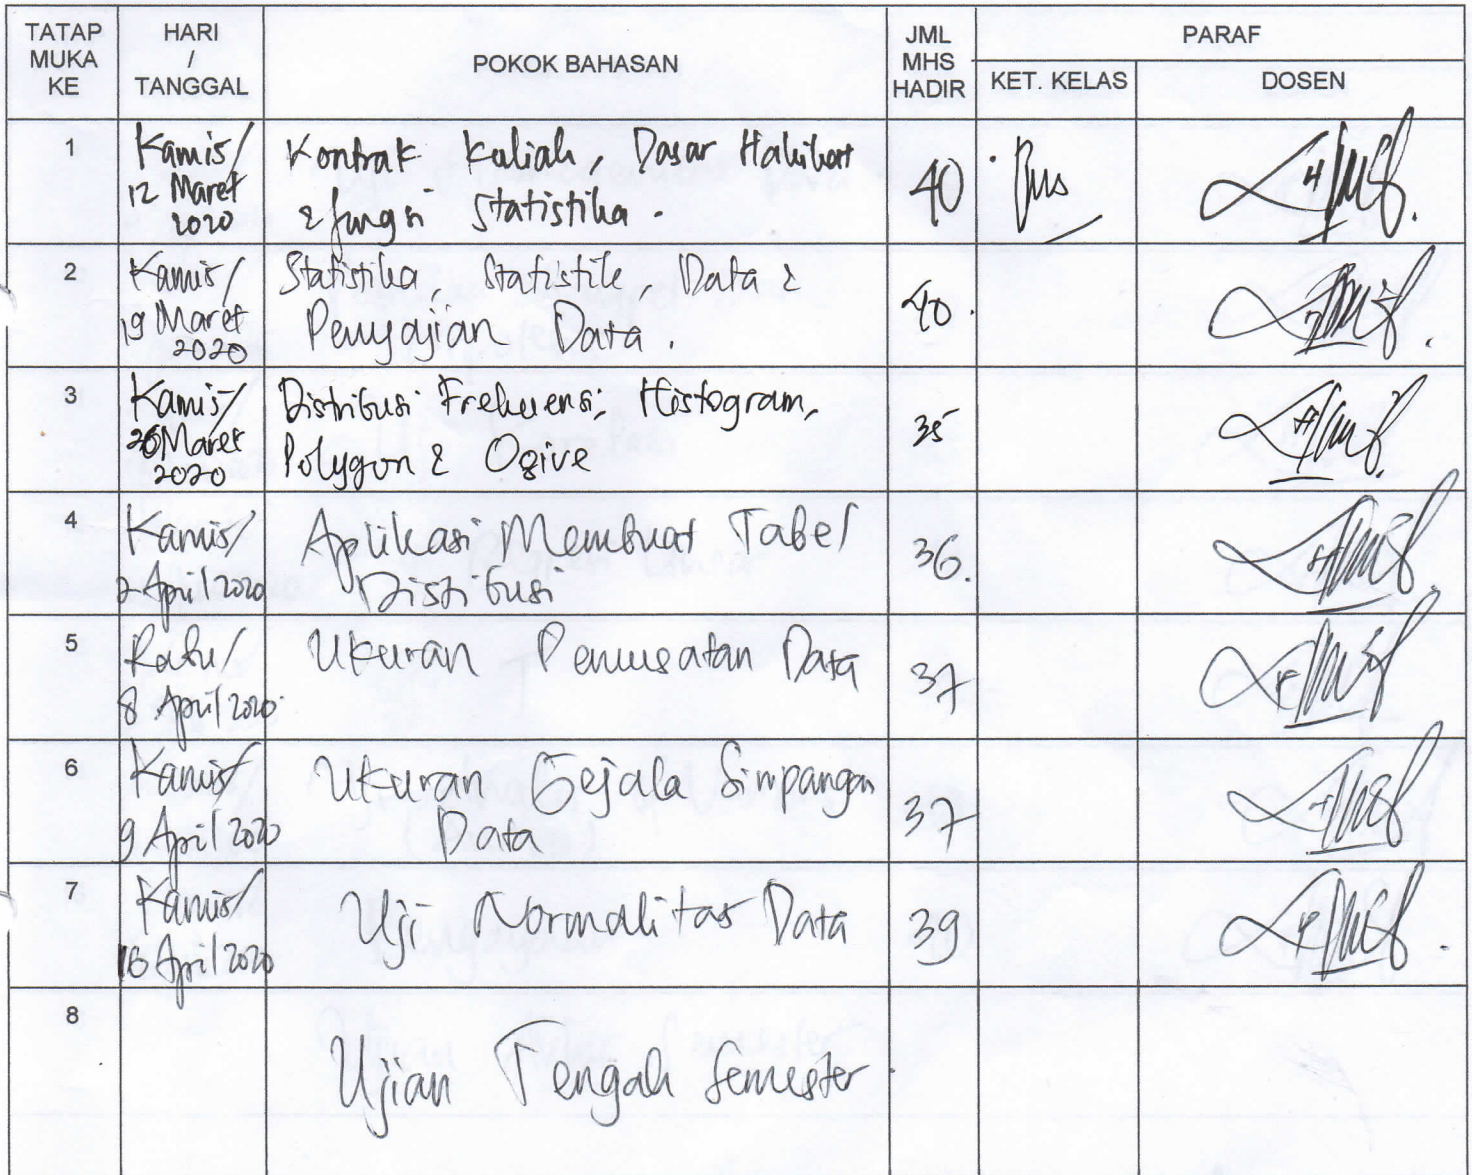 TATAP MUKA KE
HARI / TANGGAL
POKOK BAHASAN
JML MHS HADIR
PARAF
KET. KELAS
DOSEN
1
Kamis/
12 Maret
2020
Kontrak Kuliah, Dasar Hakikat
& fungsi Statistika.
40
2
Kamis/
19 Maret
2020
Statistika, Statistik, Data &
Penyajian Data.
40.
3
Kamis/
26 Maret
2020
Distribusi Frekuensi, Histogram,
Polygon & Ogive
35
4
Kamis/
2 April 2020
Aplikasi Membuat Tabel
Distribusi
36.
5
Rabu/
8 April 2020
Ukuran Pemusatan Data
37
6
Kamis/
9 April 2020
Ukuran Gejala Simpangan
Data
37
7
Kamis/
16 April 2020
Uji Normalitas Data
39
8
Ujian Tengah Semester